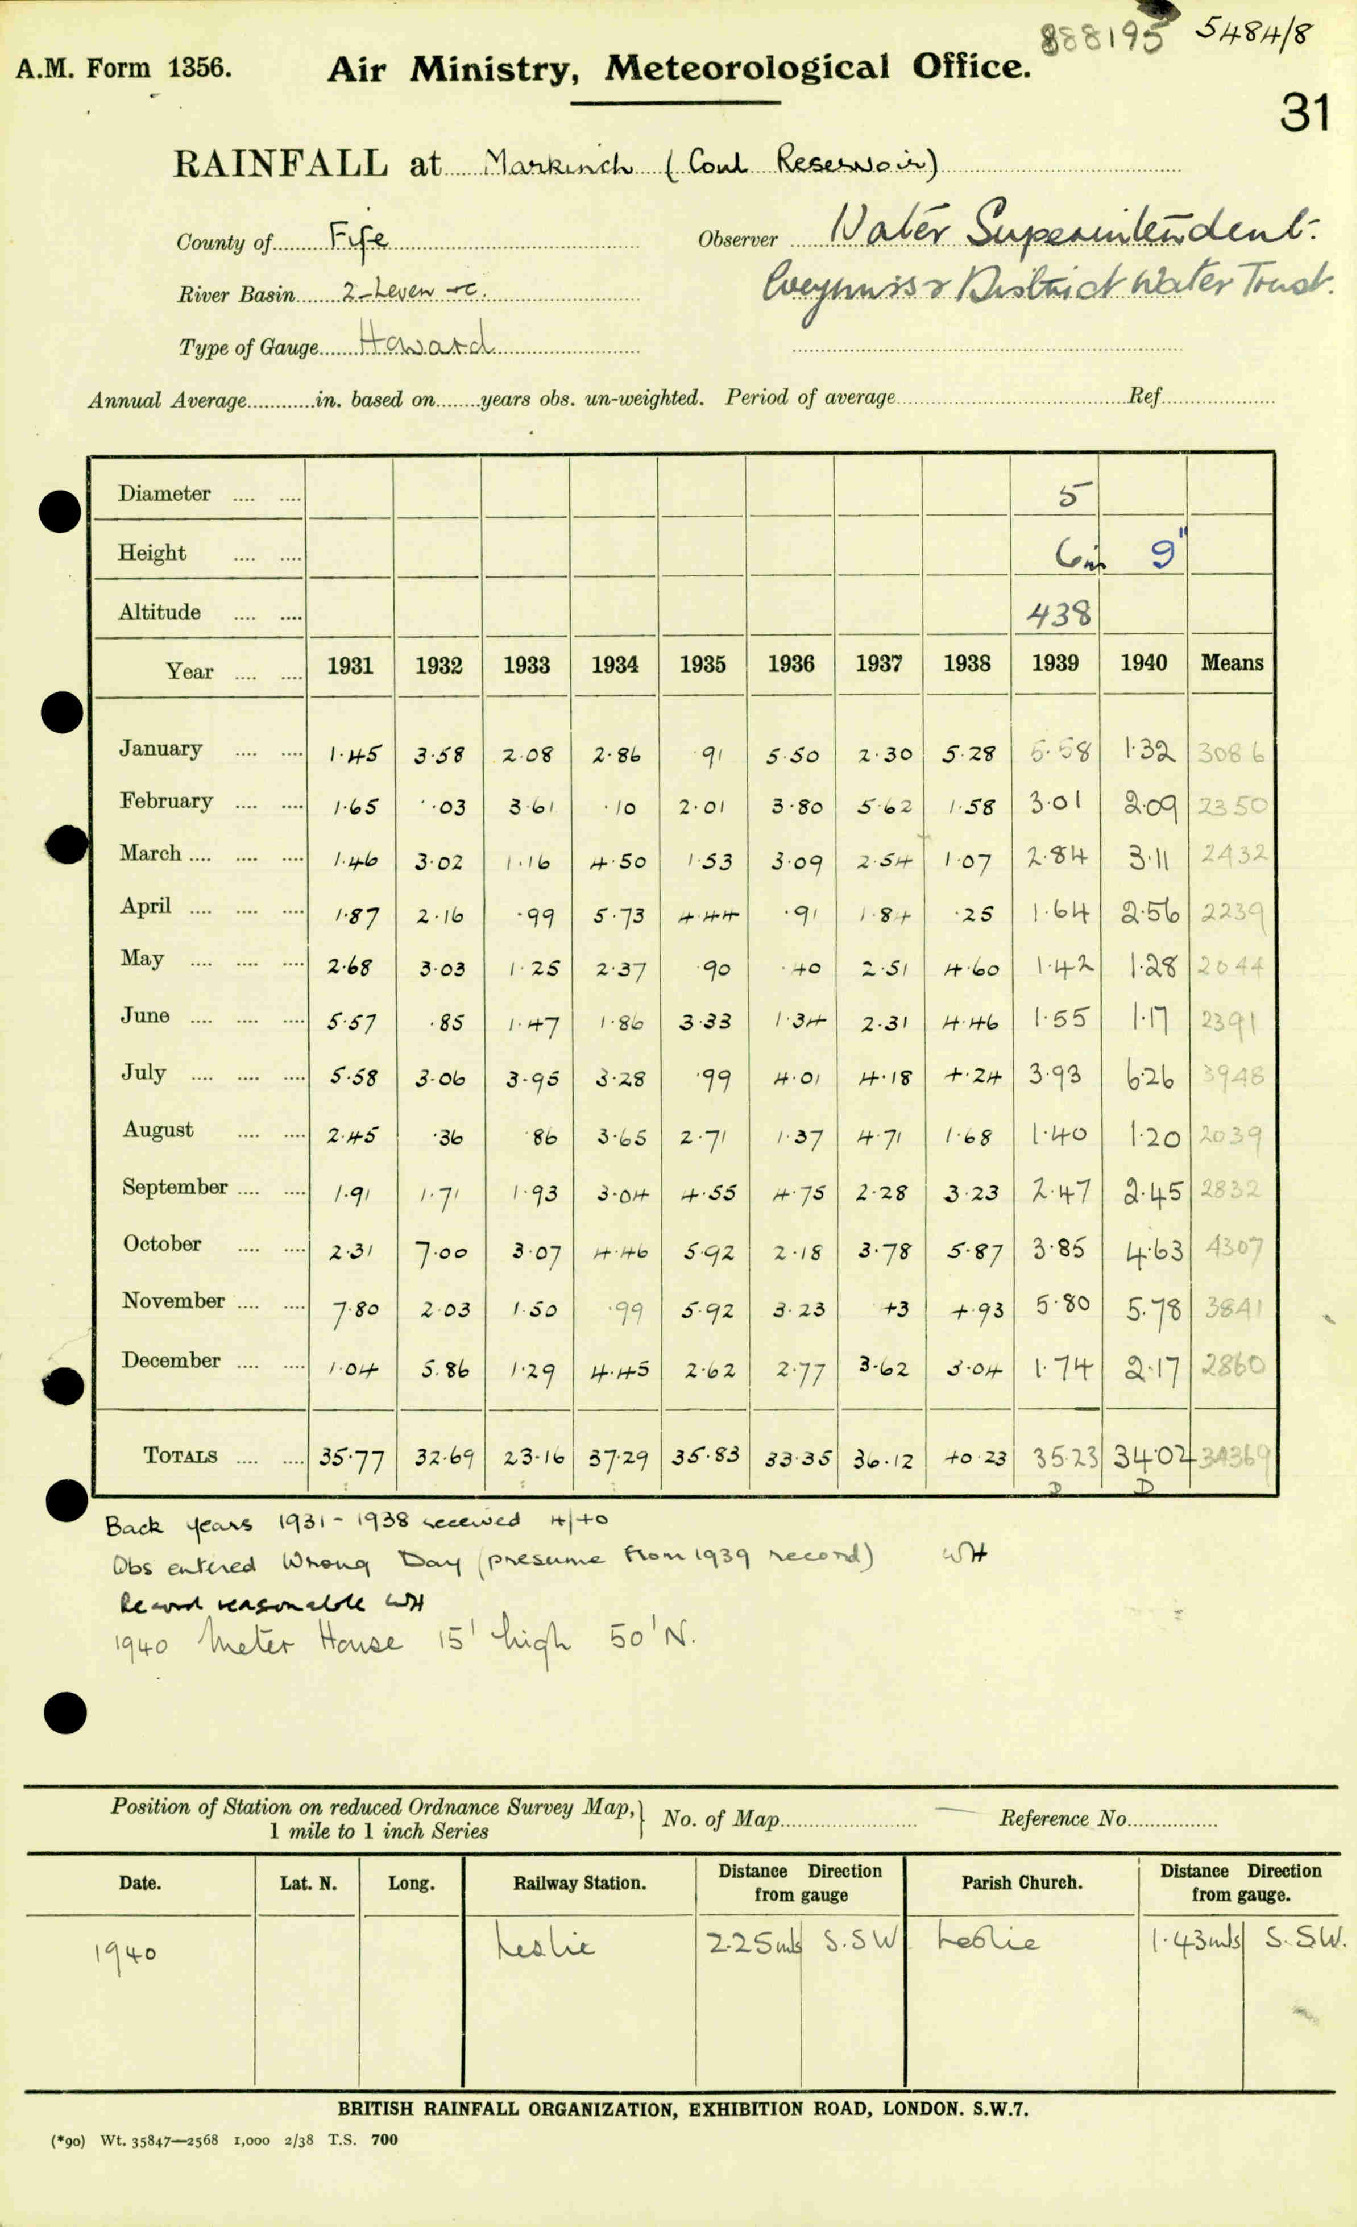 888195 5484/8
A.M. Form 1356. Air Ministry, Meteorological Office.
31
RAINFALL at Markinch (Coul Reservoir)
County of Fife Observer Water Superintendent
River Basin 2-Leven &c. Wemyss & District Water Trust.
Type of Gauge Howard
Annual Average in. based on years obs. un-weighted. Period of average Ref
Diameter 5
Height 6in 9"
Altitude 438
Year 1931 1932 1933 1934 1935 1936 1937 1938 1939 1940 Means
January 1.45 3.58 2.08 2.86 .91 5.50 2.30 5.28 5.58 1.32 3086
February 1.65 .03 3.61 .10 2.01 3.80 5.62 1.58 3.01 2.09 2350
March 1.46 3.02 1.16 4.50 1.53 3.09 2.54 1.07 2.84 3.11 2432
April 1.87 2.16 .99 5.73 4.44 .91 1.84 .25 1.64 2.56 2239
May 2.68 3.03 1.25 2.37 .90 .40 2.51 4.60 1.42 1.28 2044
June 5.57 .85 1.47 1.86 3.33 1.34 2.31 4.46 1.55 1.17 2391
July 5.58 3.06 3.95 3.28 .99 4.01 4.18 4.24 3.93 6.26 3948
August 2.45 .36 .86 3.65 2.71 1.37 4.71 1.68 1.40 1.20 2039
September 1.91 1.71 1.93 3.04 4.55 4.75 2.28 3.23 2.47 2.45 2832
October 2.31 7.00 3.07 4.46 5.92 2.18 3.78 5.87 3.85 4.63 4307
November 7.80 2.03 1.50 .99 5.92 3.23 43 4.93 5.80 5.78 3841
December 1.04 5.86 1.29 4.45 2.62 2.77 3.62 3.04 1.74 2.17 2860
TOTALS 35.77 32.69 23.16 37.29 35.83 33.35 36.12 40.23 35.23 34.02 34369
D D
Back years 1931-1938 received 4/40
Obs entered Wrong Day (presume from 1939 record) WH
Record reasonable WH
1940 Meter House 15' high 50'N.
Position of Station on reduced Ordnance Survey Map, 1 mile to 1 inch Series No. of Map Reference No.
Date. Lat. N. Long. Railway Station. Distance Direction from gauge Parish Church. Distance Direction from gauge.
1940 Leslie 2.25mls S.SW Leslie 1.43mls S.SW.
BRITISH RAINFALL ORGANIZATION, EXHIBITION ROAD, LONDON. S.W.7.
(*90) Wt. 35847—2568 1,000 2/38 T.S. 700